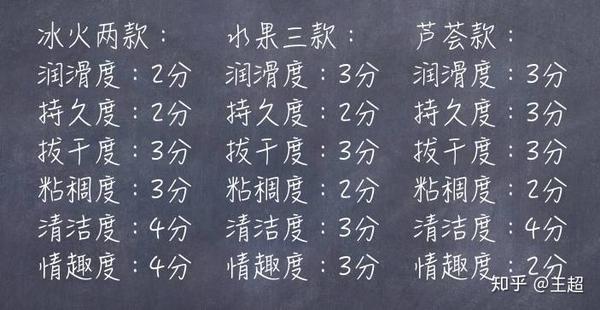 冰火两款：
润滑度：2分
持久度：2分
拔干度：3分
粘稠度：3分
清洁度：4分
情趣度：4分
水果三款：
润滑度：3分
持久度：2分
拔干度：3分
粘稠度：2分
清洁度：3分
情趣度：3分
芦荟款：
润滑度：3分
持久度：3分
拔干度：3分
粘稠度：2分
清洁度：4分
情趣度：2分
知乎 @王超